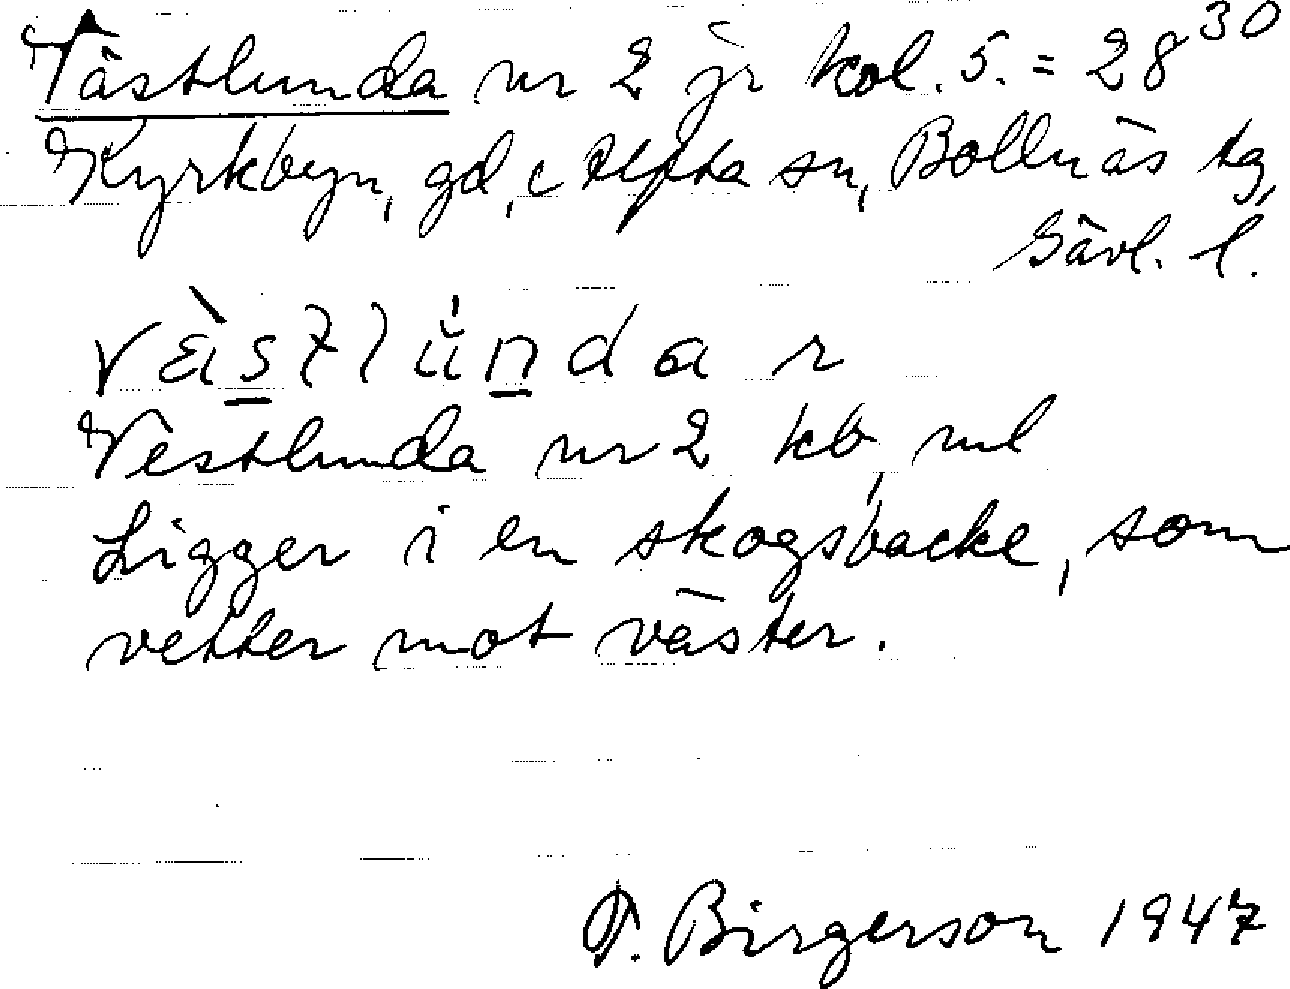 Västlunda nr 2 jr kol. 5. = 28³⁰
Kyrkbyn, gd, i Alfta sn, Bollnäs tg,
Gävl. l.
västlundar
Vestlunda nr 2 kb, ml
Ligger i en skogsbacke, som
vetter mot väster.
Birgerson 1947